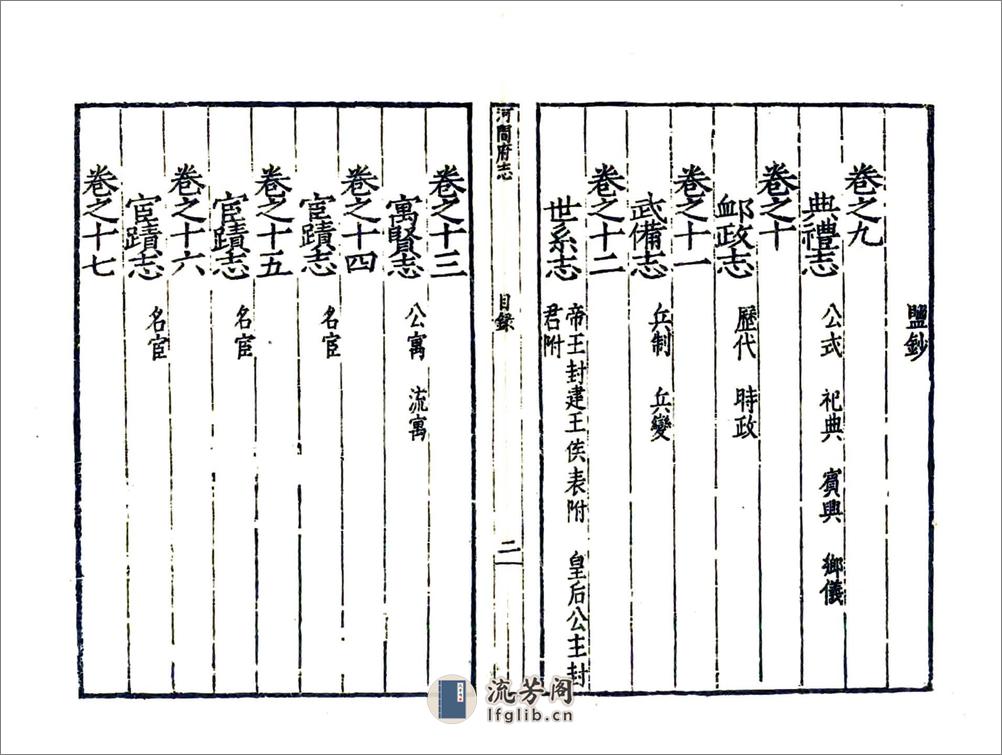 鹽鈔
卷之九
典禮志 公式 祀典 賓興 鄉儀
卷之十
卹政志 歷代 時政
卷之十一
武備志 兵制 兵變
卷之十二
世系志 帝王封建王侯表附 皇后公主封
君附
河間府志 目錄 二
卷之十三
寓賢志 公寓 流寓
卷之十四
宦蹟志 名宦
卷之十五
宦蹟志 名宦
卷之十六
宦蹟志 名宦
卷之十七
流芳阁
lfglib.cn